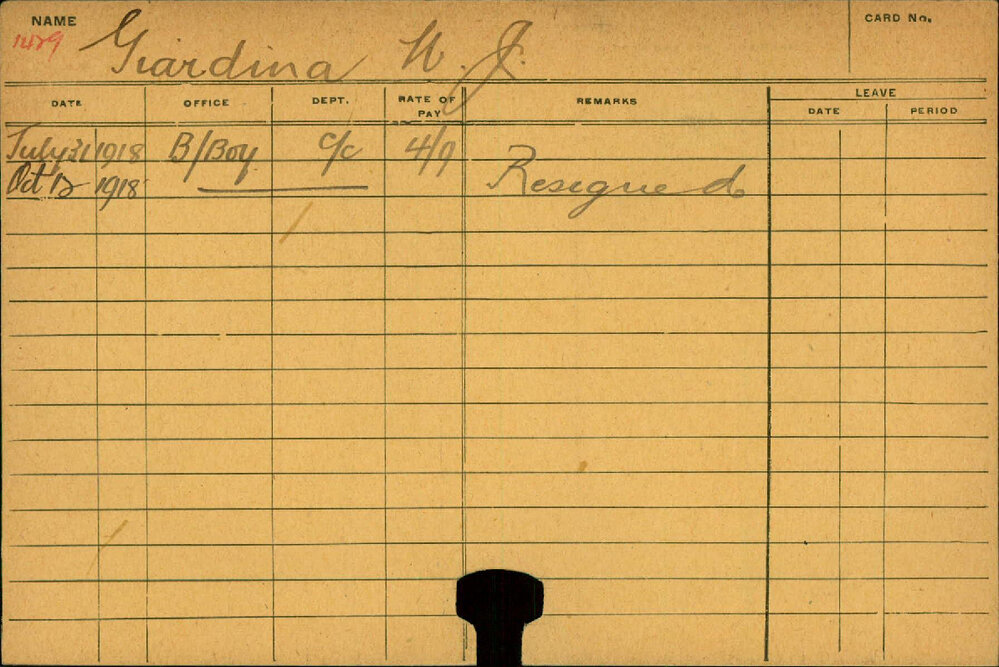 NAME CARD No.
1429 Giardina W. J.
DATE OFFICE DEPT. RATE OF PAY REMARKS LEAVE
DATE PERIOD
July 31 1918 B/Boy C/c 4/9
Oct 12 1918 Resigned